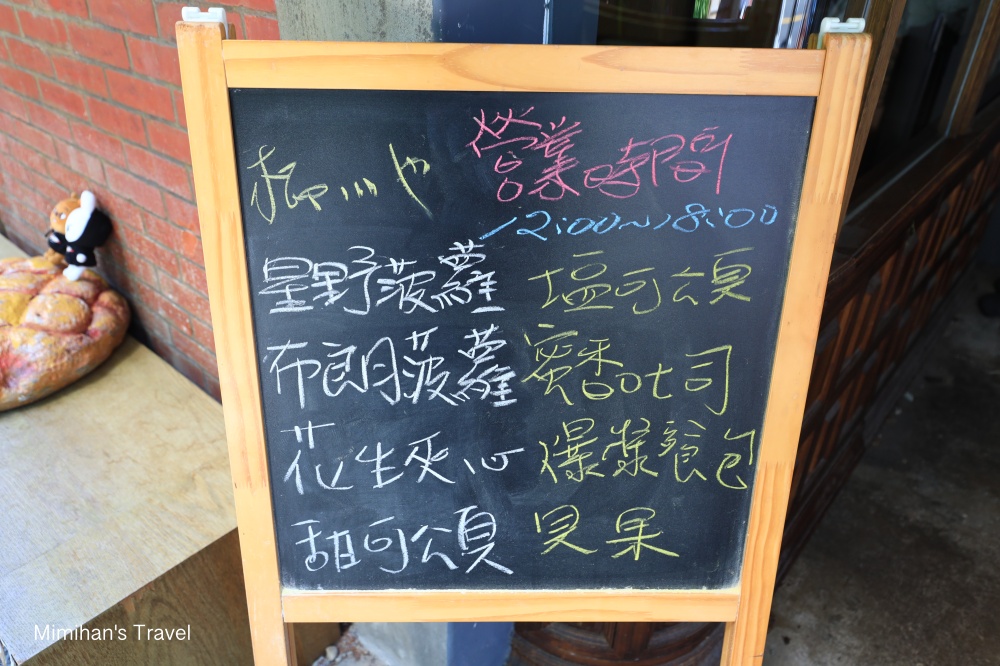 營業時間
12:00~18:00
星野菠蘿
布朗菠蘿
花生夾心
甜可頌
塩可頌
蜜香吐司
爆漿餐包
貝果
Mimihan's Travel